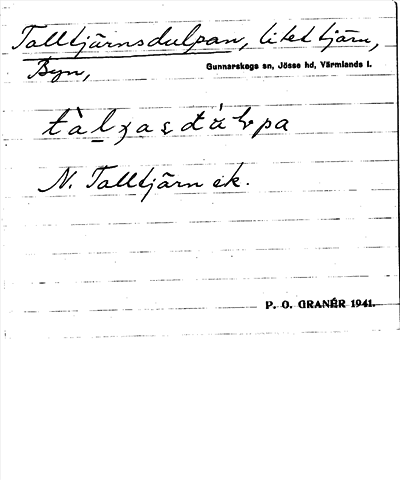 Talltjärnsdulpan, litet tjärn,
Byn,
Gunnarskogs sn, Jösse hd, Värmlands l.
N. Talltjärn ek.
P. O. GRANÉR 1941.